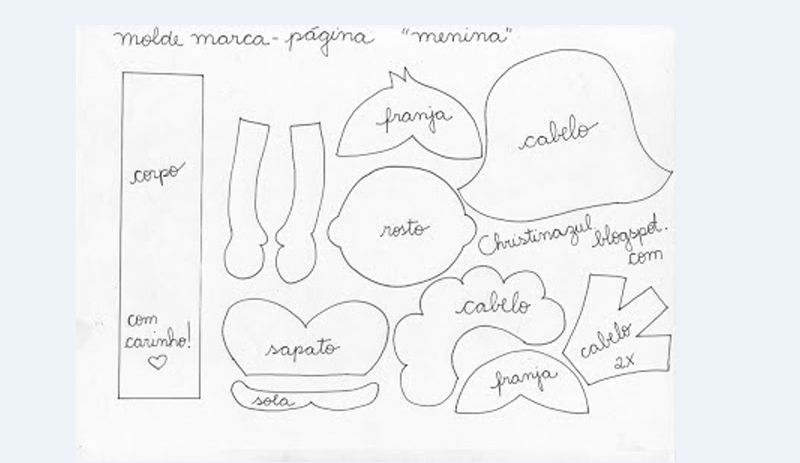 molde marca-página "menina"
corpo
com
carinho!
franja
cabelo
rosto
Christinazul.blogspot.
com
sapato
sola
cabelo
franja
cabelo
2x